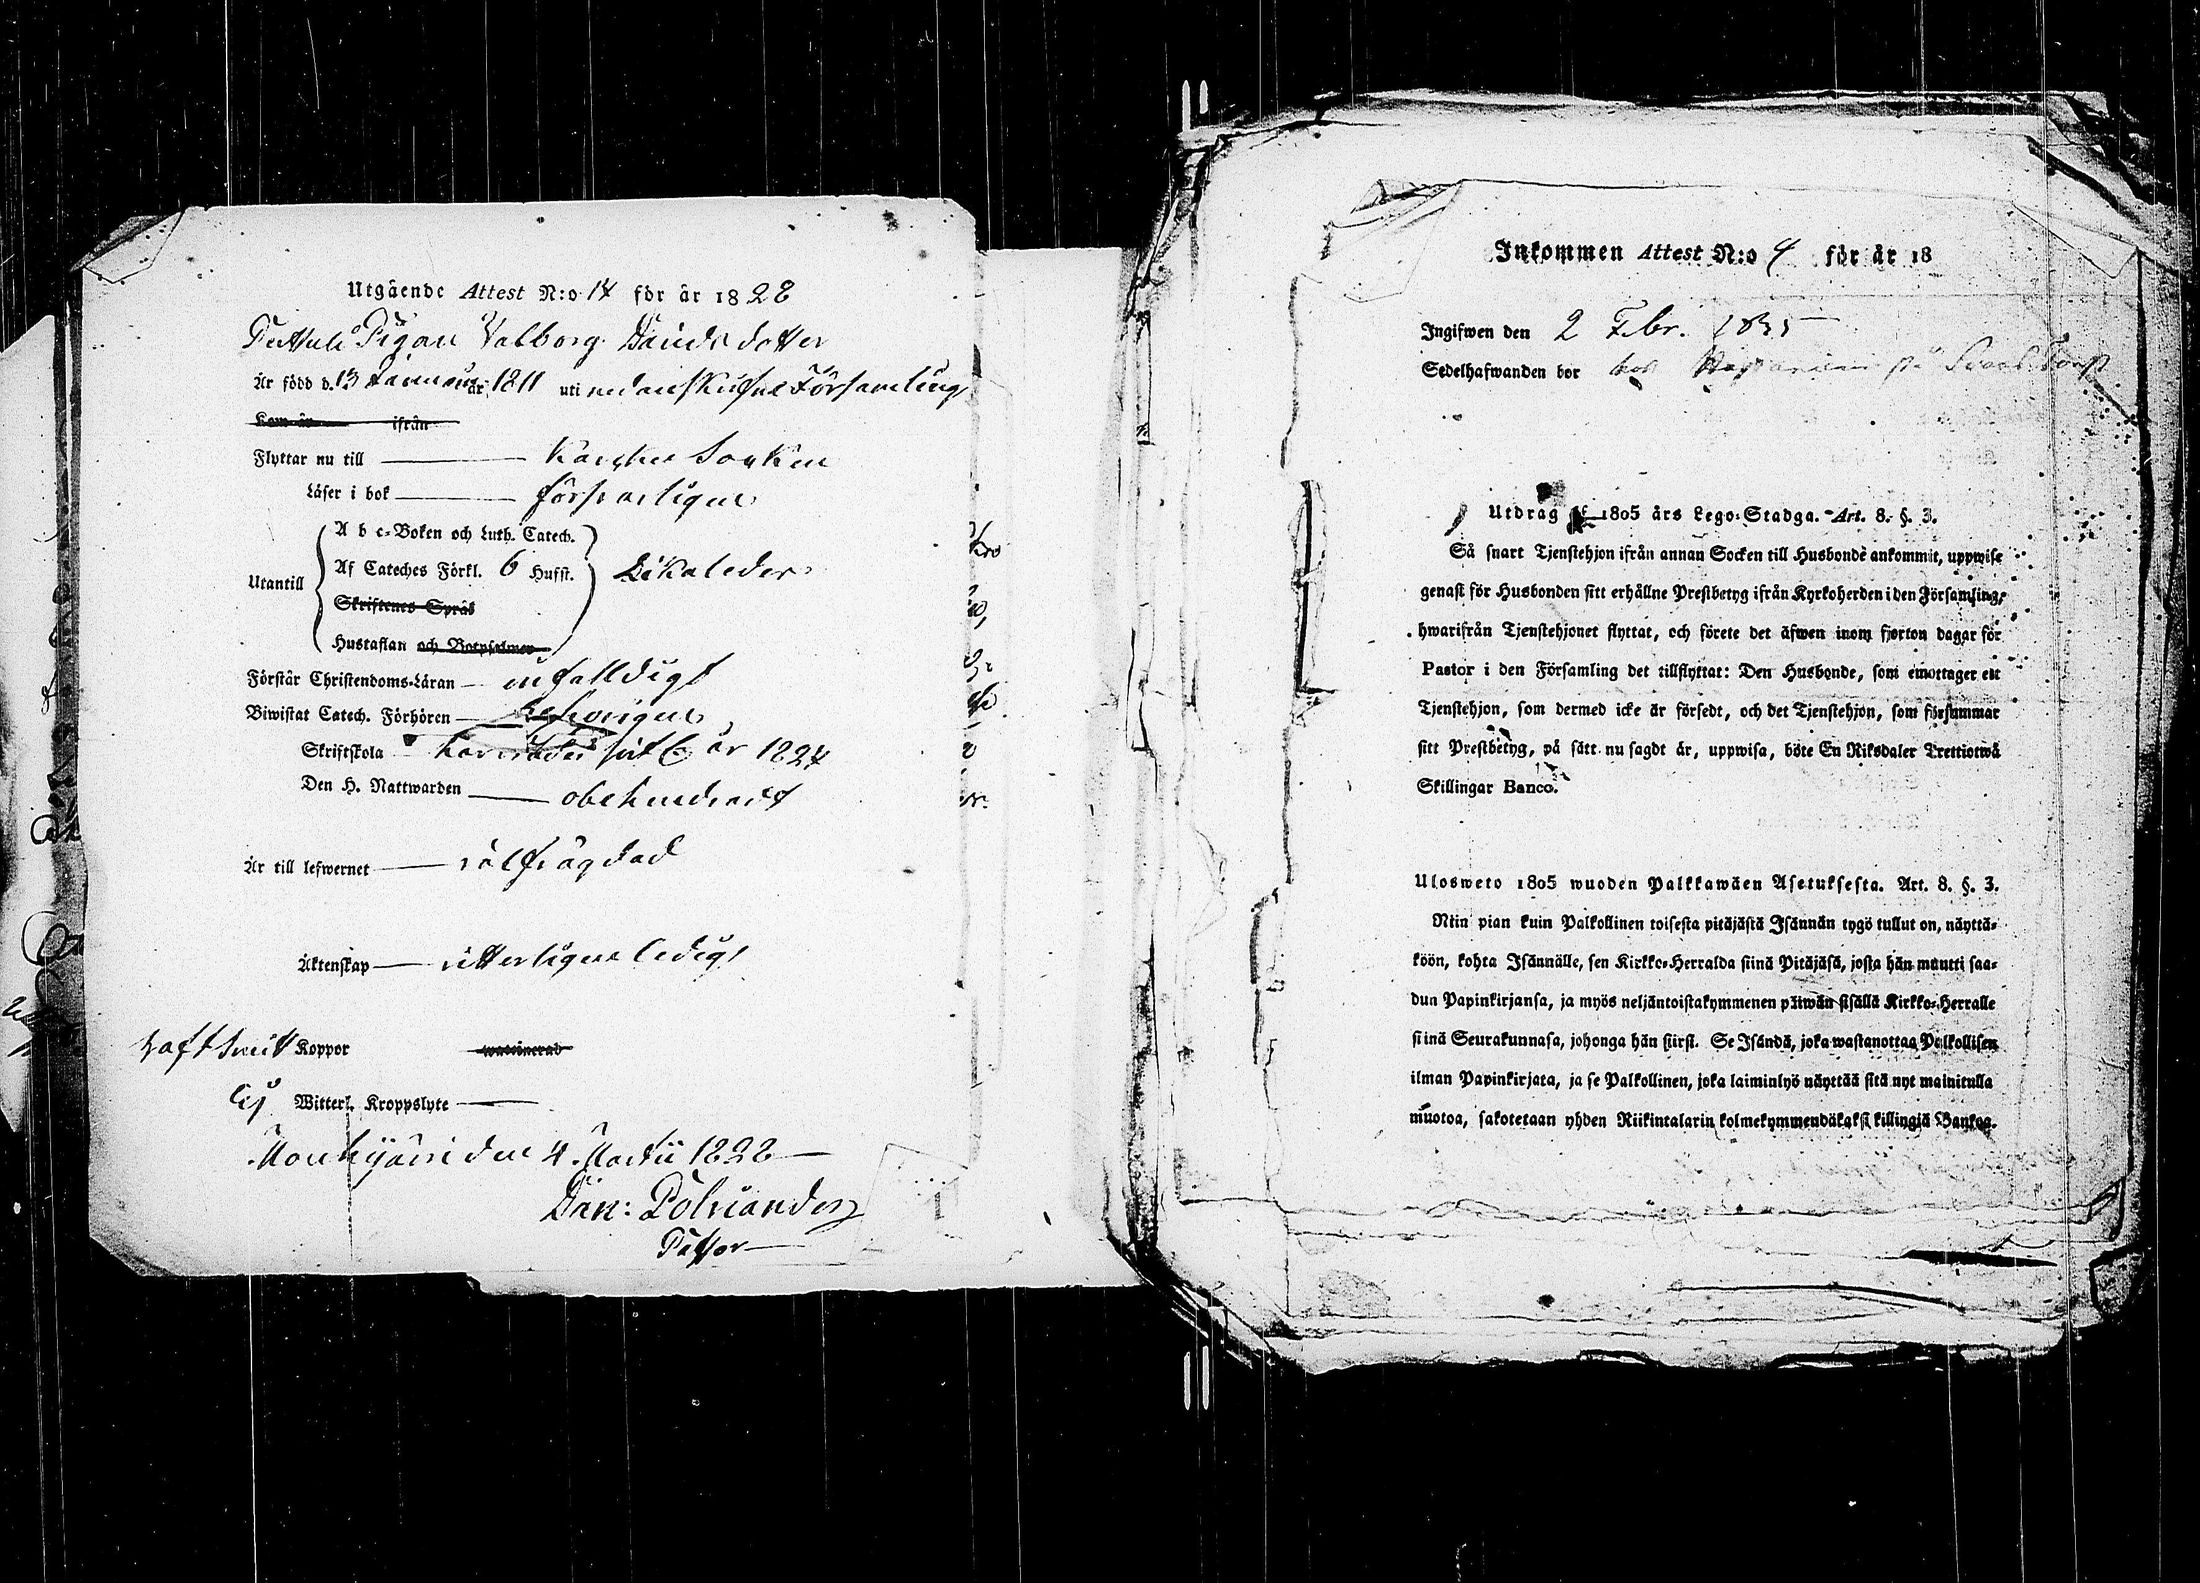 Utgående Attest N:o 14 för år 1828
Pigan Valborg Davids dotter
Är född d. 13 Januari år 1811 uti nedanskrifne Församling
Kom år ifrån
Flyttar nu till Socken
Läser i bok försvarligen
A b c-Boken och Luth. Catech.
Utantill Af Cateches Förkl. 6 Hufst. Likaledes
Skriftenes Språk
Hustaflan och Botpsalmer
Förstår Christendoms-Läran enfalldigt
Biwistat Catech. Förhören behörigen
Skriftskola år 1824
Den H. Nattwarden obehindradt
Är till lefwernet välfrägdad
Äktenskap vitterligen ledig
haft Koppor waccinerad
Witterl. Kroppslyte
Mouhijärvi den 4 Martii 1828
Dan: Polviander
Pastor
Inkommen Attest N:o 4 för år 18
Ingifwen den 2 Febr. 1835
Sedelhafwanden bor hos på Torp
Utdrag af 1805 års Lego-Stadga. Art. 8. §. 3.
Så snart Tjenstehjon ifrån annan Socken till Husbonde ankommit, uppwise
genast för Husbonden sitt erhållne Prestbetyg ifrån Kyrkoherden i den Församling,
hwarifrån Tjenstehjonet flyttat, och förete det äfwen inom fjorton dagar för
Pastor i den Församling det tillflyttat: Den Husbonde, som emottager ett
Tjenstehjon, som dermed icke är försedt, och det Tjenstehjon, som försummar
sitt Prestbetyg, på sätt nu sagdt är, uppwisa, böte En Riksdaler Trettiotwå
Skillingar Banco.
Ulosweto 1805 wuoden Palkkawäen Asetuksesta. Art. 8. §. 3.
Niin pian kuin Palkollinen toisesta pitäjästä Isännän tygö tullut on, näyttä-
köön, kohta Isännälle, sen Kirkko-Herralda siinä Pitäjäsä, josta hän muutti saa-
dun Papinkirjansa, ja myös neljäntoistakymmenen päiwän sisällä Kirkko-Herralle
siinä Seurakunnasa, johonga hän siirsi. Se Isändä, joka wastanottaa Palkollisen
ilman Papinkirjata, ja se Palkollinen, joka laiminlyö näyttää sitä nyt mainitulla
muotoa, sakotetaan yhden Riikintalarin kolmekymmendäkaksi killingiä Bankoa.